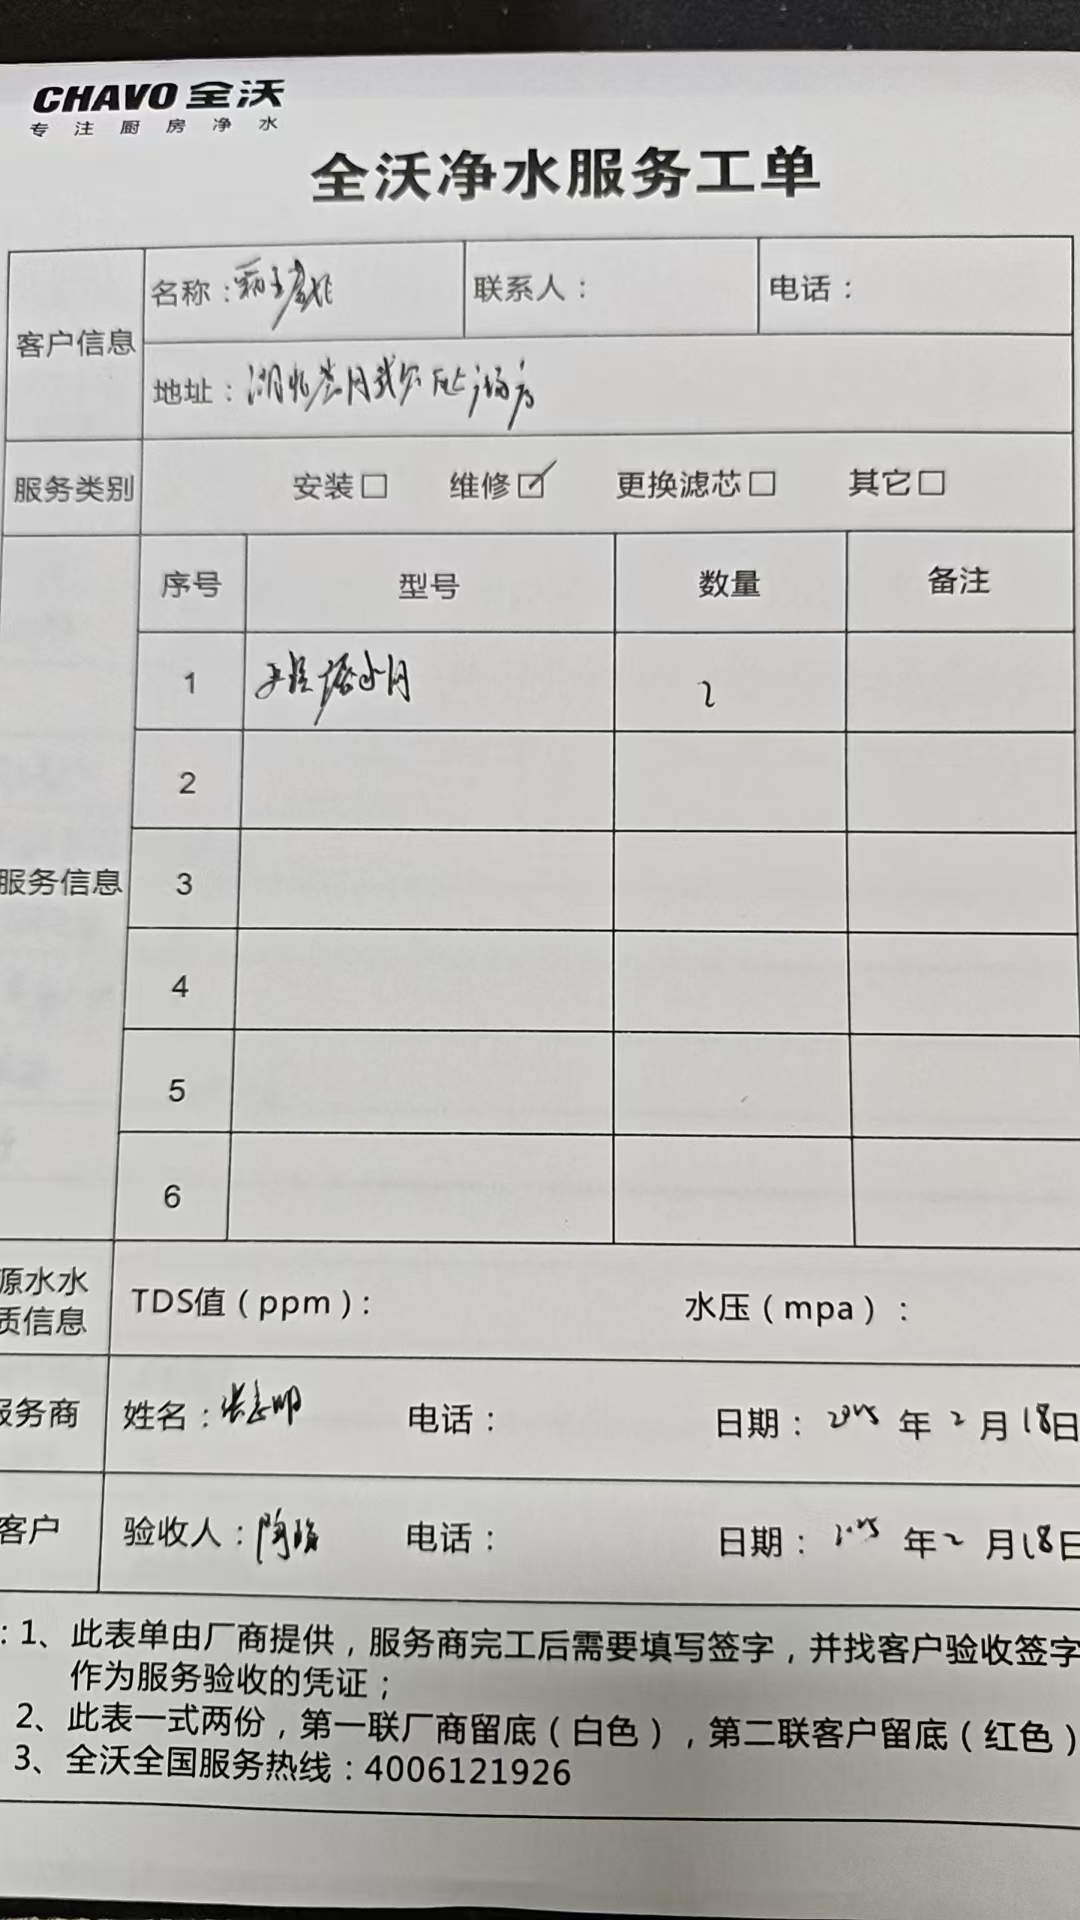 CHAVO 全沃
专注厨房净水
全沃净水服务工单
客户信息
名称：霸王茶姬
联系人：
电话：
地址：湖北黄冈武穴 广场店
服务类别
安装□ 维修☑ 更换滤芯□ 其它□
序号 型号 数量 备注
服务信息
1 2
2
3
4
5
6
源水水质信息
TDS值（ppm）: 水压（mpa）：
服务商
姓名：张志明 电话： 日期：2025年2月18日
客户
验收人：陶 电话： 日期：2025年2月18日
：1、此表单由厂商提供，服务商完工后需要填写签字，并找客户验收签字
作为服务验收的凭证；
2、此表一式两份，第一联厂商留底（白色），第二联客户留底（红色）
3、全沃全国服务热线：4006121926